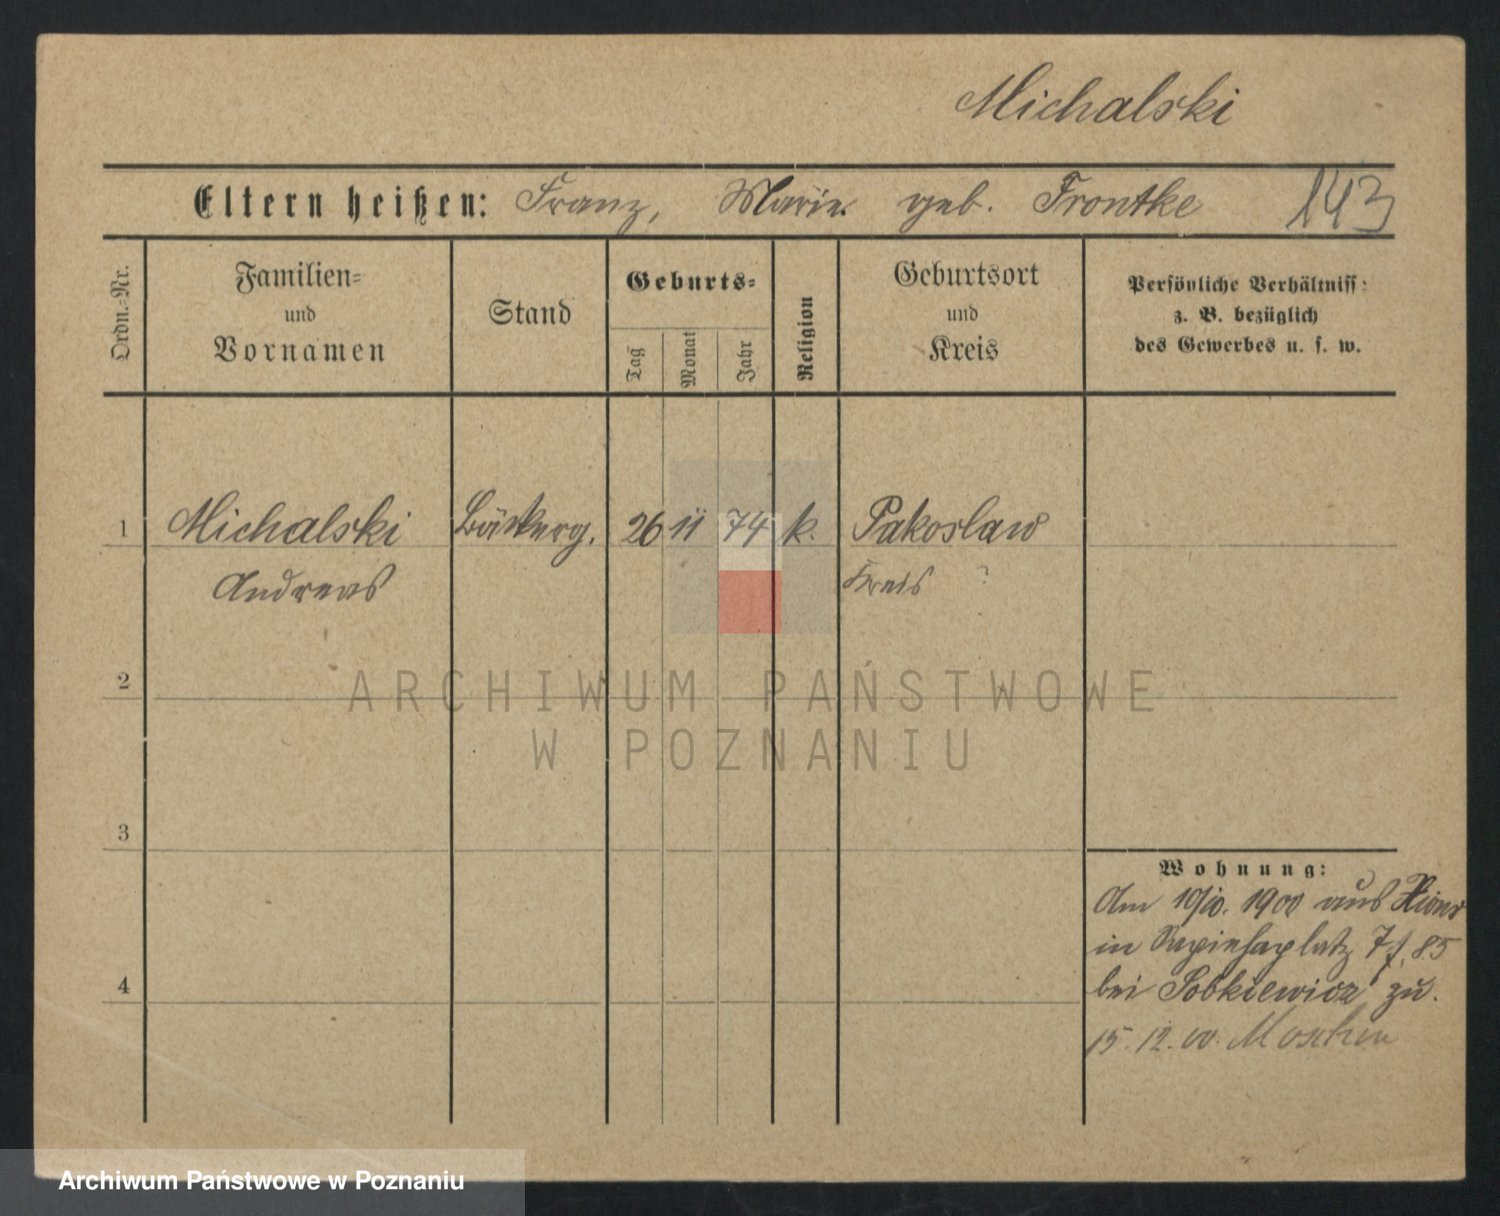 Michalski
Eltern heißen: Franz, Marie geb. Frontke 143
Ordn.=Nr.
Familien=
und
Vornamen
Stand
Geburts=
Tag
Monat
Jahr
Religion
Geburtsort
und
Kreis
Persönliche Verhältniss:
z. B. bezüglich
des Gewerbes u. s. w.
1 Michalski Bäckerg. 26 11 74 k. Pakoslaw
Andreas Kreis ?
2
3
4
Wohnung:
Am 10/10. 1900 aus
in Sapiehaplatz 7 f. 85
bei Sobkiewicz zu.
15.12.00. Moschin
ARCHIWUM PAŃSTWOWE
W POZNANIU
Archiwum Państwowe w Poznaniu